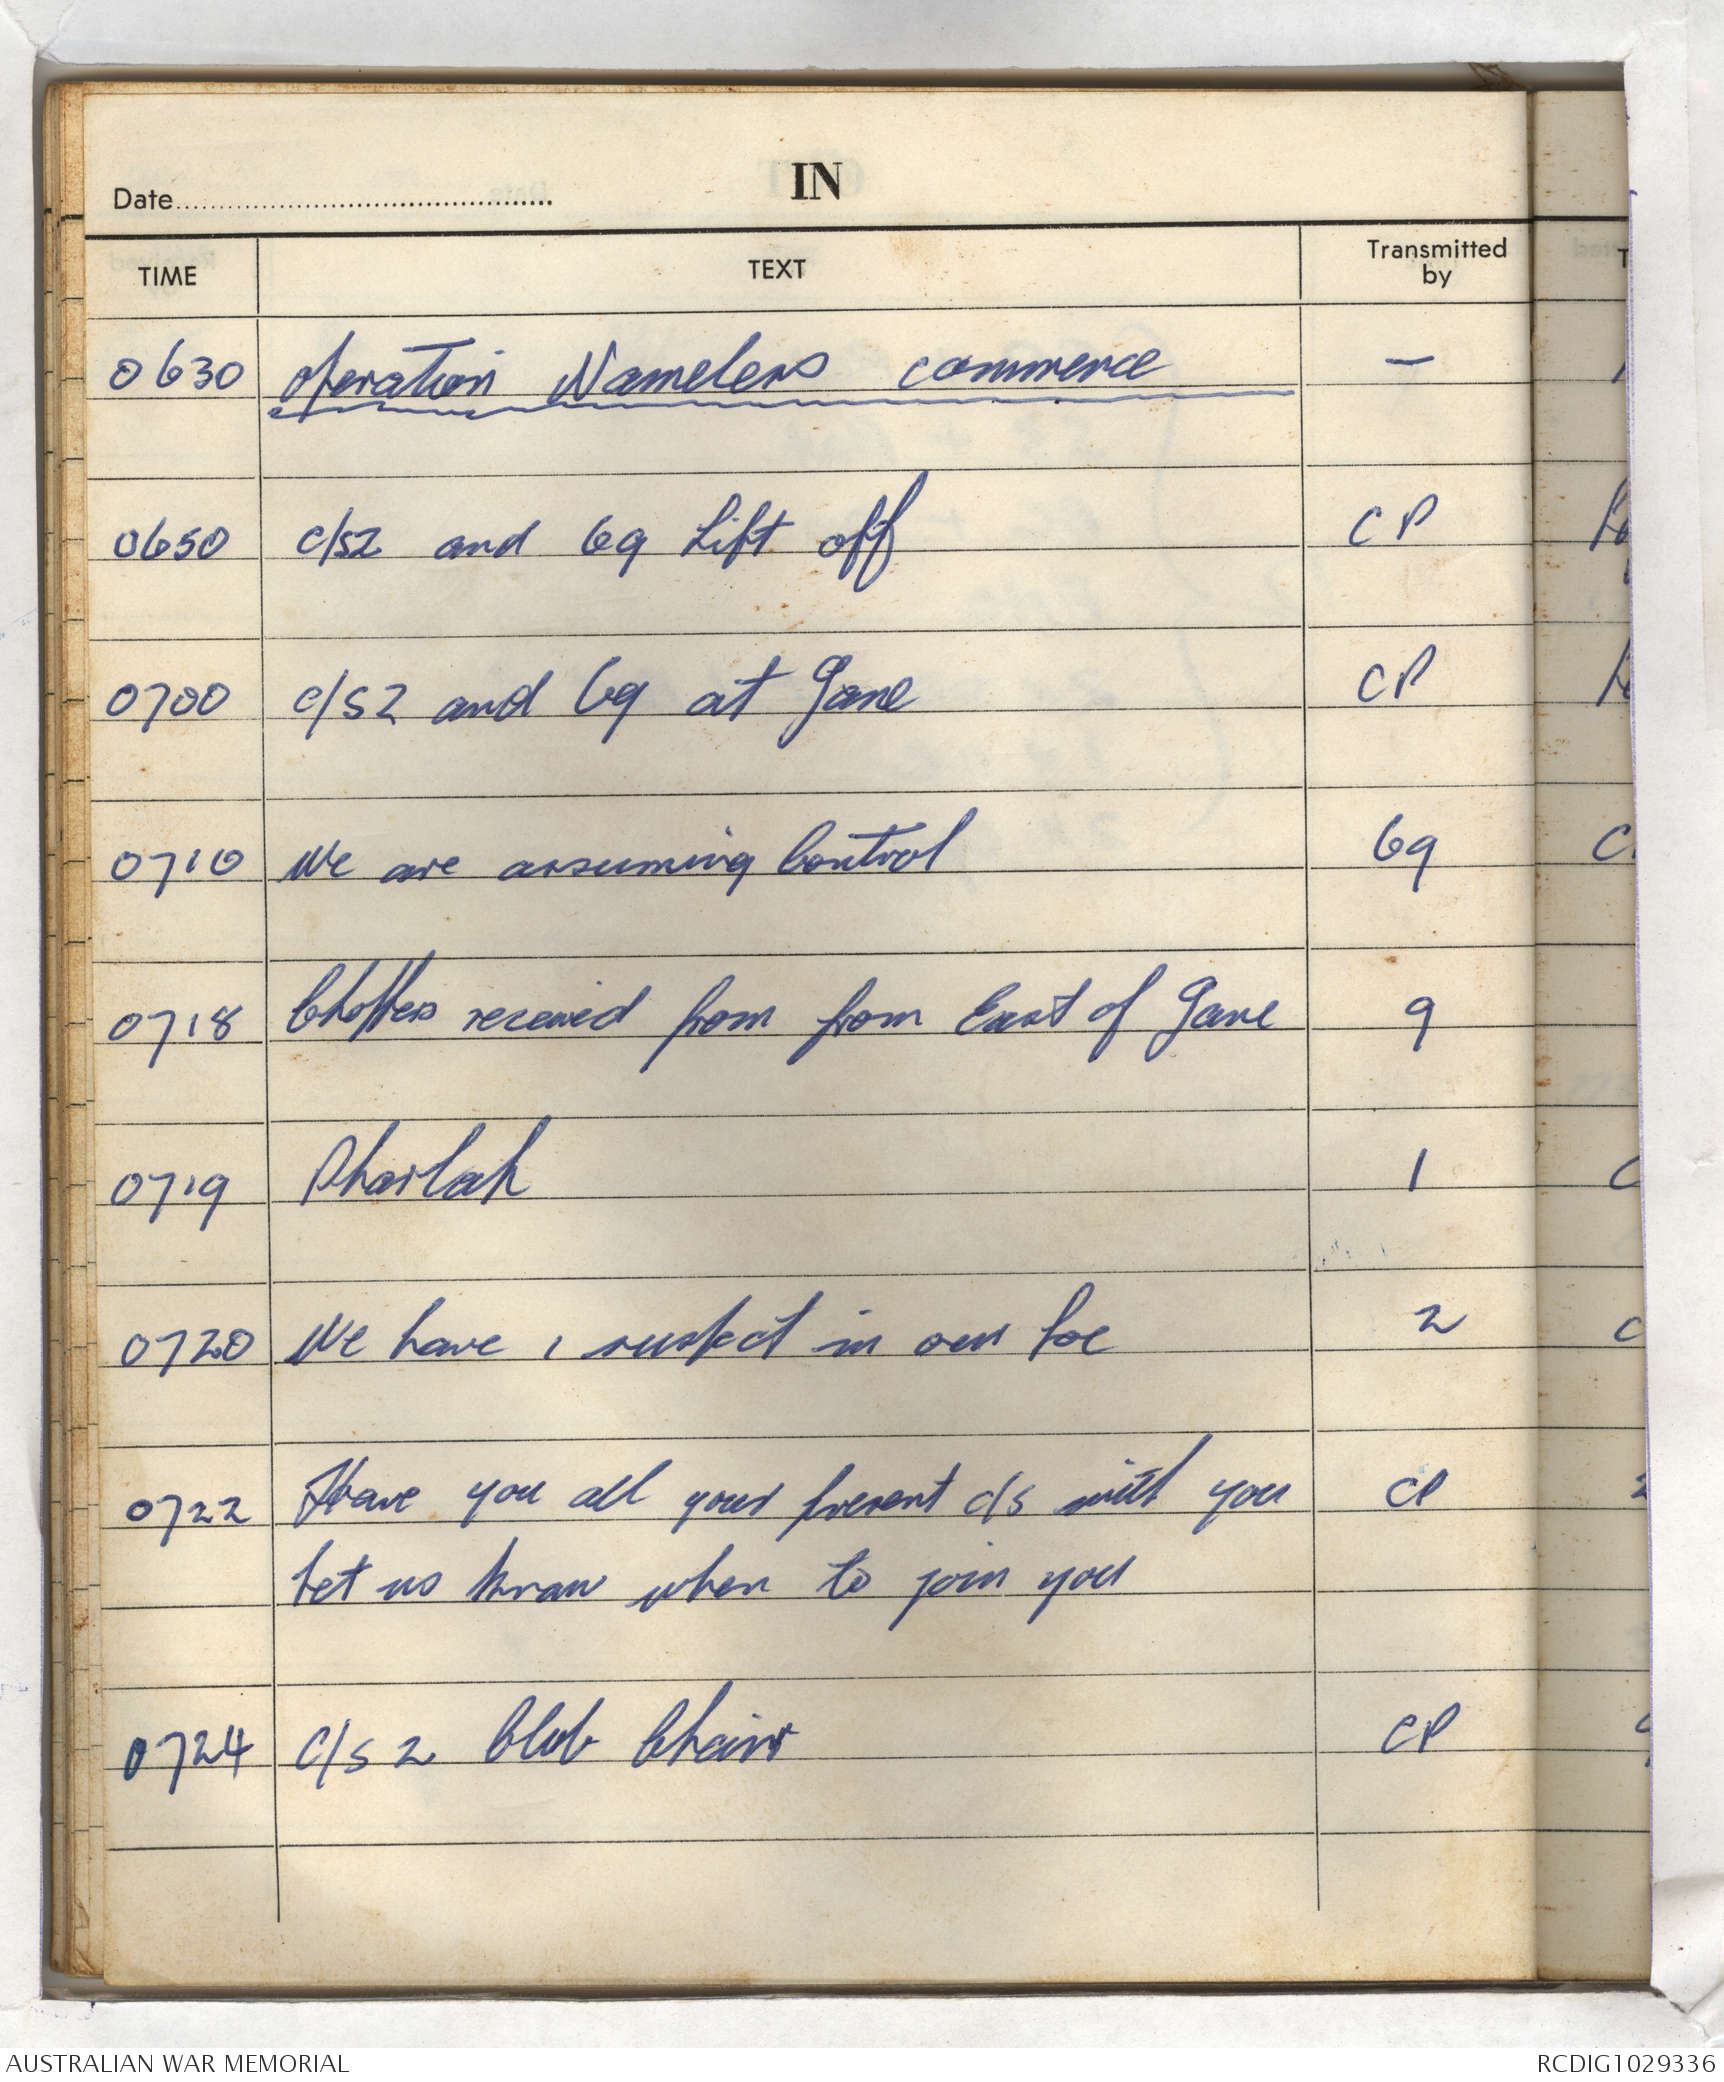 IN
Date
TIME TEXT Transmitted by
0630 Operation Nameless commence —
0650 c/s2 and 69 Lift off CP
0700 c/s 2 and 69 at Gane CP
0710 We are assuming Control 69
0718 Choppers received from from East of Gane 9
0719 1
0720 We have 1 suspect in our loc 2
0722 Have you all your present c/s with you CP
let us know when to join you
0724 c/s 2 Club CP
AUSTRALIAN WAR MEMORIAL RCDIG1029336